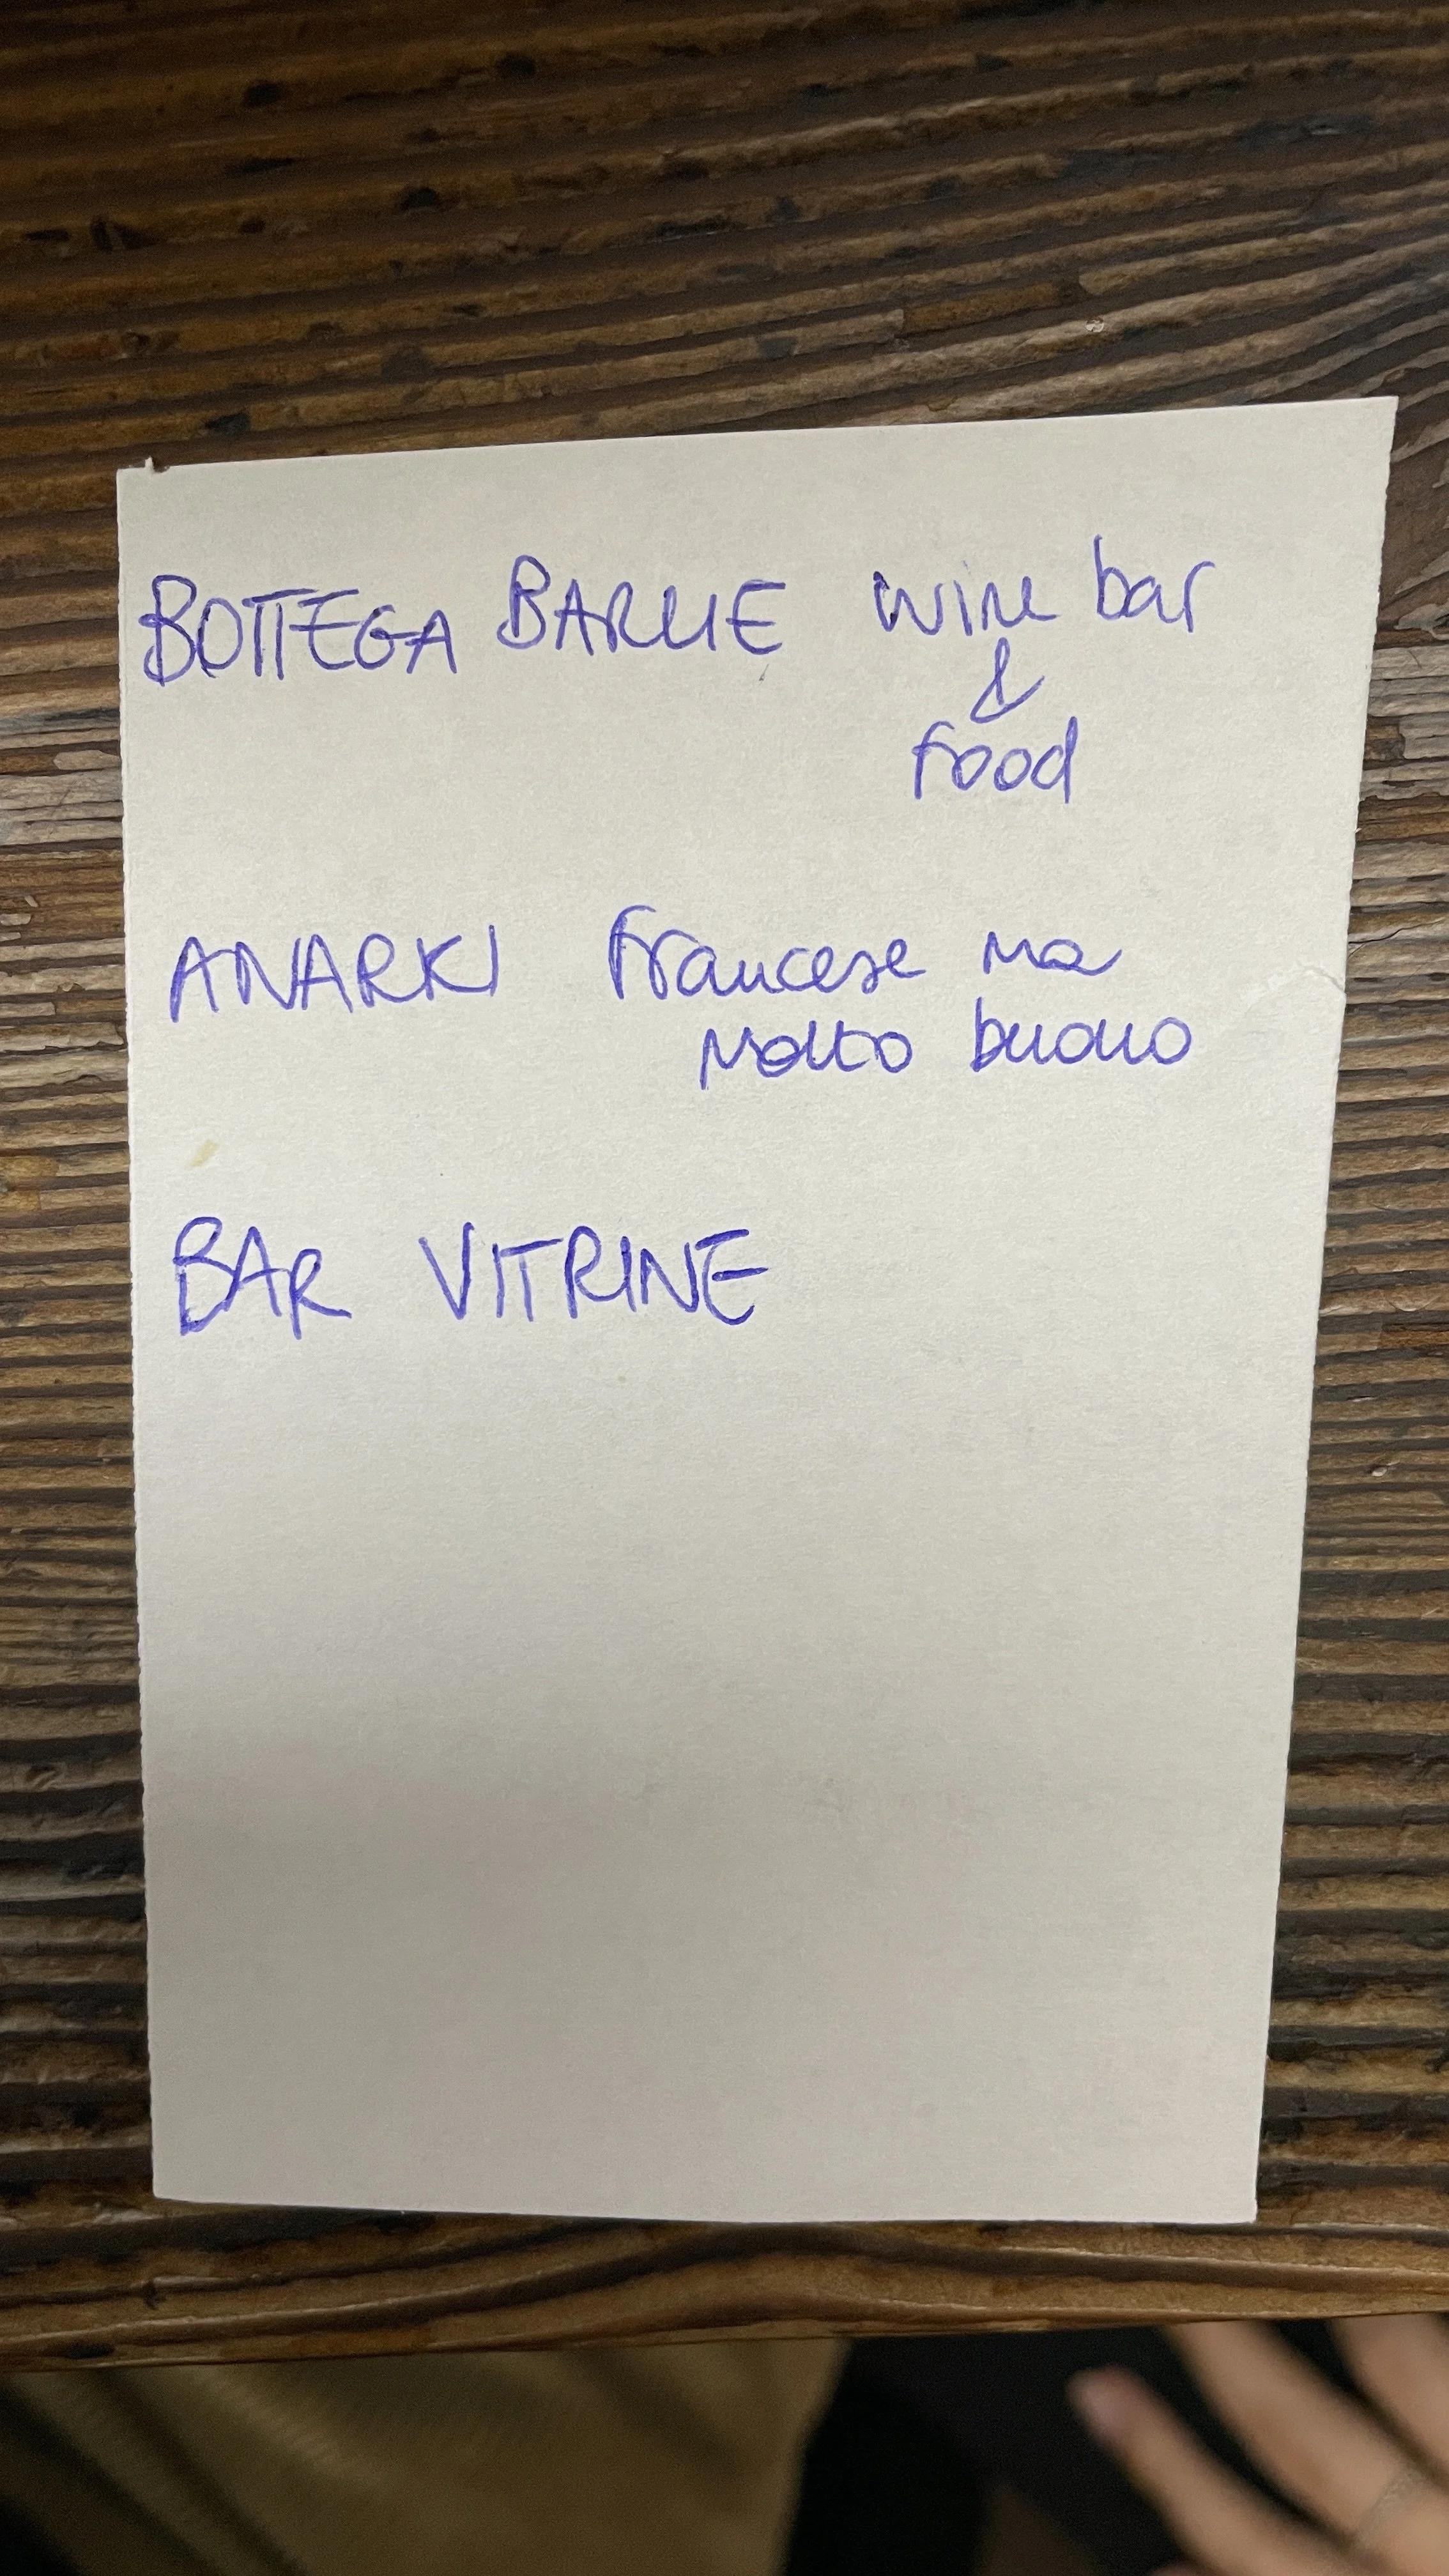 BOTTEGA BARLIE wine bar
&
food
ANARKI francese ma
molto buono
BAR VITRINE